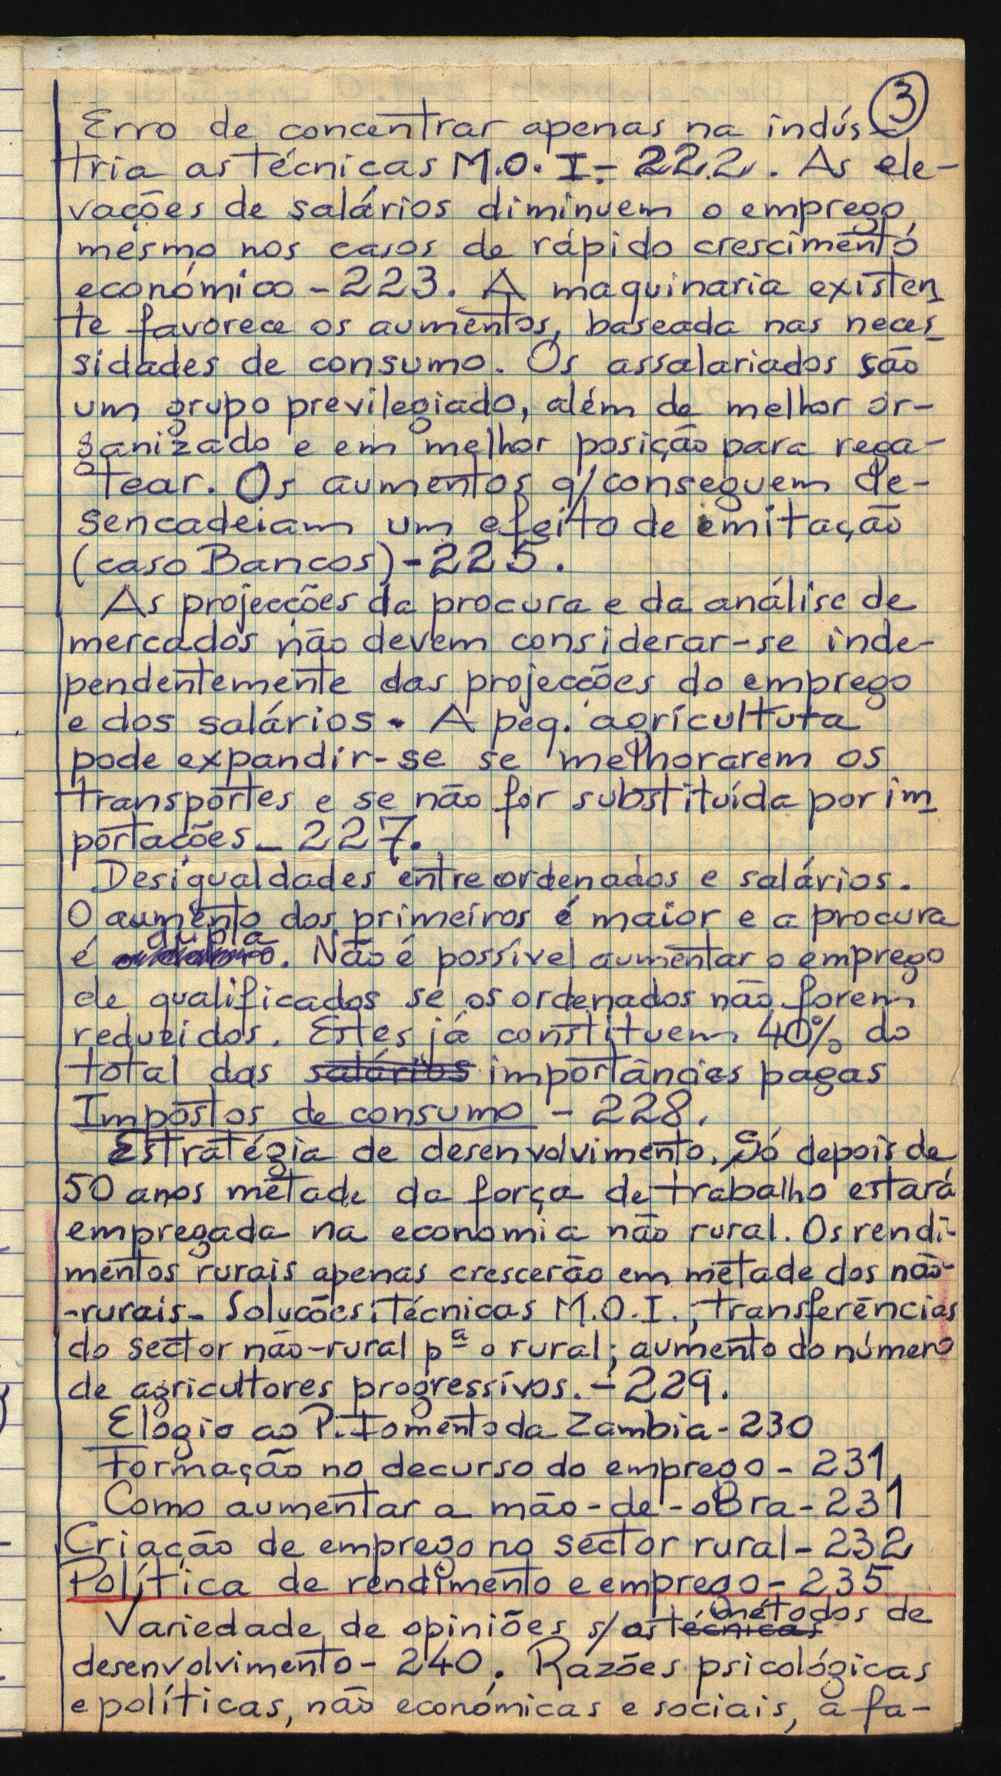 3
Erro de concentrar apenas na indús-
tria as técnicas M.O.I.- 222. As ele-
vações de salários diminuem o emprego,
mesmo nos casos de rápido crescimento
económico - 223. A maquinaria existen
te favorece os aumentos, baseada nas neces
sidades de consumo. Os assalariados são
um grupo previlegiado, além de melhor or-
ganizado e em melhor posição para rega-
tear. Os aumentos q/ conseguem de-
sencadeiam um efeito de imitação
(caso Bancos) - 225.
As projecções da procura e da análise de
mercados não devem considerar-se inde-
pendentemente das projecções do emprego
e dos salários. A peq. agricultura
pode expandir-se se melhorarem os
transportes e se não for substituída por im
portações - 227.
Desigualdades entre ordenados e salários.
O aumento dos primeiros é maior e a procura
dupla
é . Não é possível aumentar o emprego
de qualificados se os ordenados não forem
reduzidos. Estes já constituem 40% do
total das salários importâncias pagas
Impostos de consumo - 228.
Estratégia de desenvolvimento. Só depois de
50 anos metade da força de trabalho estará
empregada na economia não rural. Os rendi-
mentos rurais apenas crescerão em metade dos não-
-rurais - Soluções: técnicas M.O.I.; transferências
do sector não-rural pª o rural; aumento do número
de agricultores progressivos. - 229.
Elogio ao P. Fomento da Zambia - 230
Formação no decurso do emprego - 231
Como aumentar a mão-de-obra - 231
Criação de emprego no sector rural - 232
Política de rendimento e emprego - 235
métodos de
Variedade de opiniões s/ as técnicas
desenvolvimento - 240. Razões psicológicas
e políticas, não económicas e sociais, a fa-